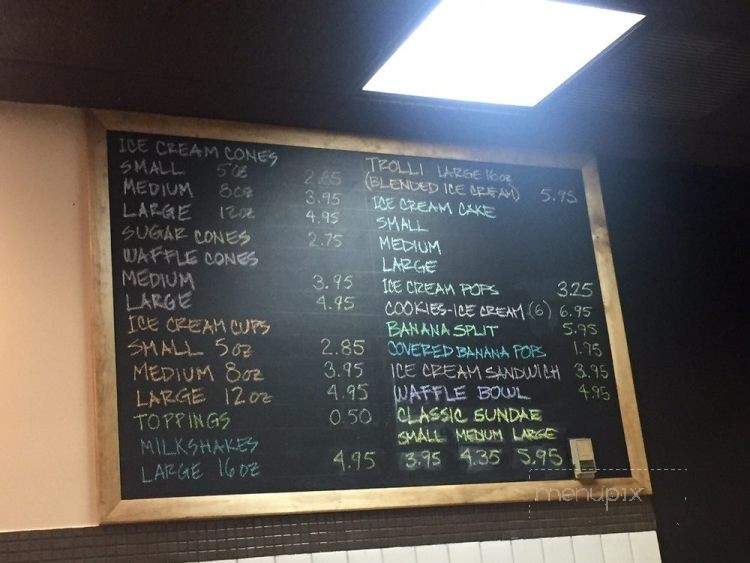 ICE CREAM CONES
SMALL 5oz 2.85
MEDIUM 8oz 3.95
LARGE 12oz 4.95
SUGAR CONES 2.75
WAFFLE CONES
MEDIUM 3.95
LARGE 4.95
ICE CREAM CUPS
SMALL 5oz 2.85
MEDIUM 8oz 3.95
LARGE 12oz 4.95
TOPPINGS 0.50
MILKSHAKES
LARGE 16oz 4.95
TROLLI LARGE 16oz
(BLENDED ICE CREAM) 5.95
ICE CREAM CAKE
SMALL
MEDIUM
LARGE
ICE CREAM POPS 3.25
COOKIES-ICE CREAM (6) 6.95
BANANA SPLIT 5.95
COVERED BANANA POPS 1.95
ICE CREAM SANDWICH 3.95
WAFFLE BOWL 4.95
CLASSIC SUNDAE
SMALL MEDIUM LARGE
3.95 4.35 5.95
menupix